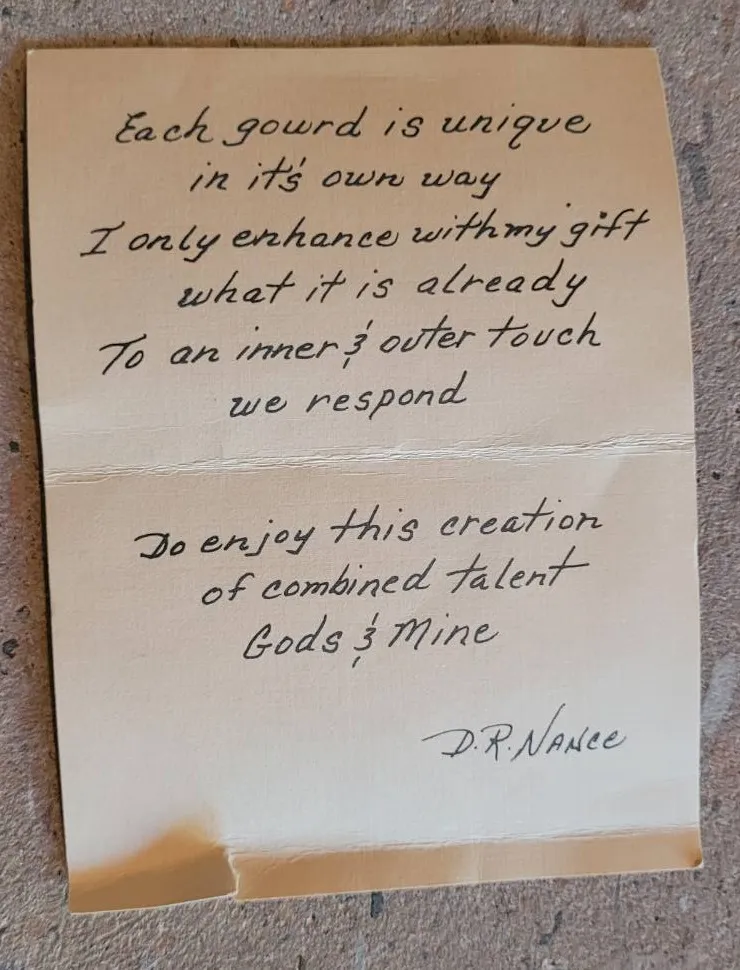 Each gourd is unique
in it's own way
I only enhance with my gift
what it is already
To an inner & outer touch
we respond
Do enjoy this creation
of combined talent
Gods & Mine
D.R. Nance